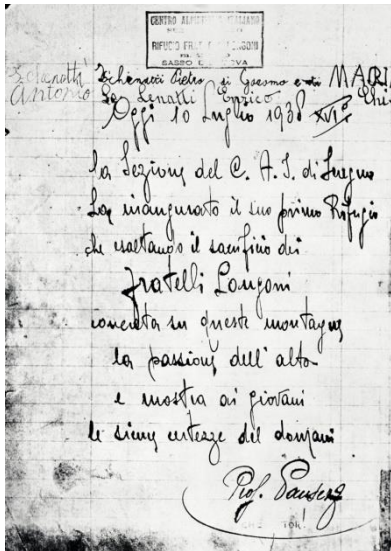 CENTRO ALPINISTICO ITALIANO
RIFUGIO FRATELLI LONGONI
SASSO
Schenatti Schenatti Pietro di Erasmo MARI
Antonio Lenatti Enrico
Oggi 10 Luglio 1938 XVI°
la Sezione del C. A. I. di Seregno
ha inaugurato il suo primo Rifugio
che esaltando il sacrificio dei
fratelli Longoni
concreta su queste montagne
la passione dell'alto
e mostra ai giovani
le sicure certezze del domani
Prof.